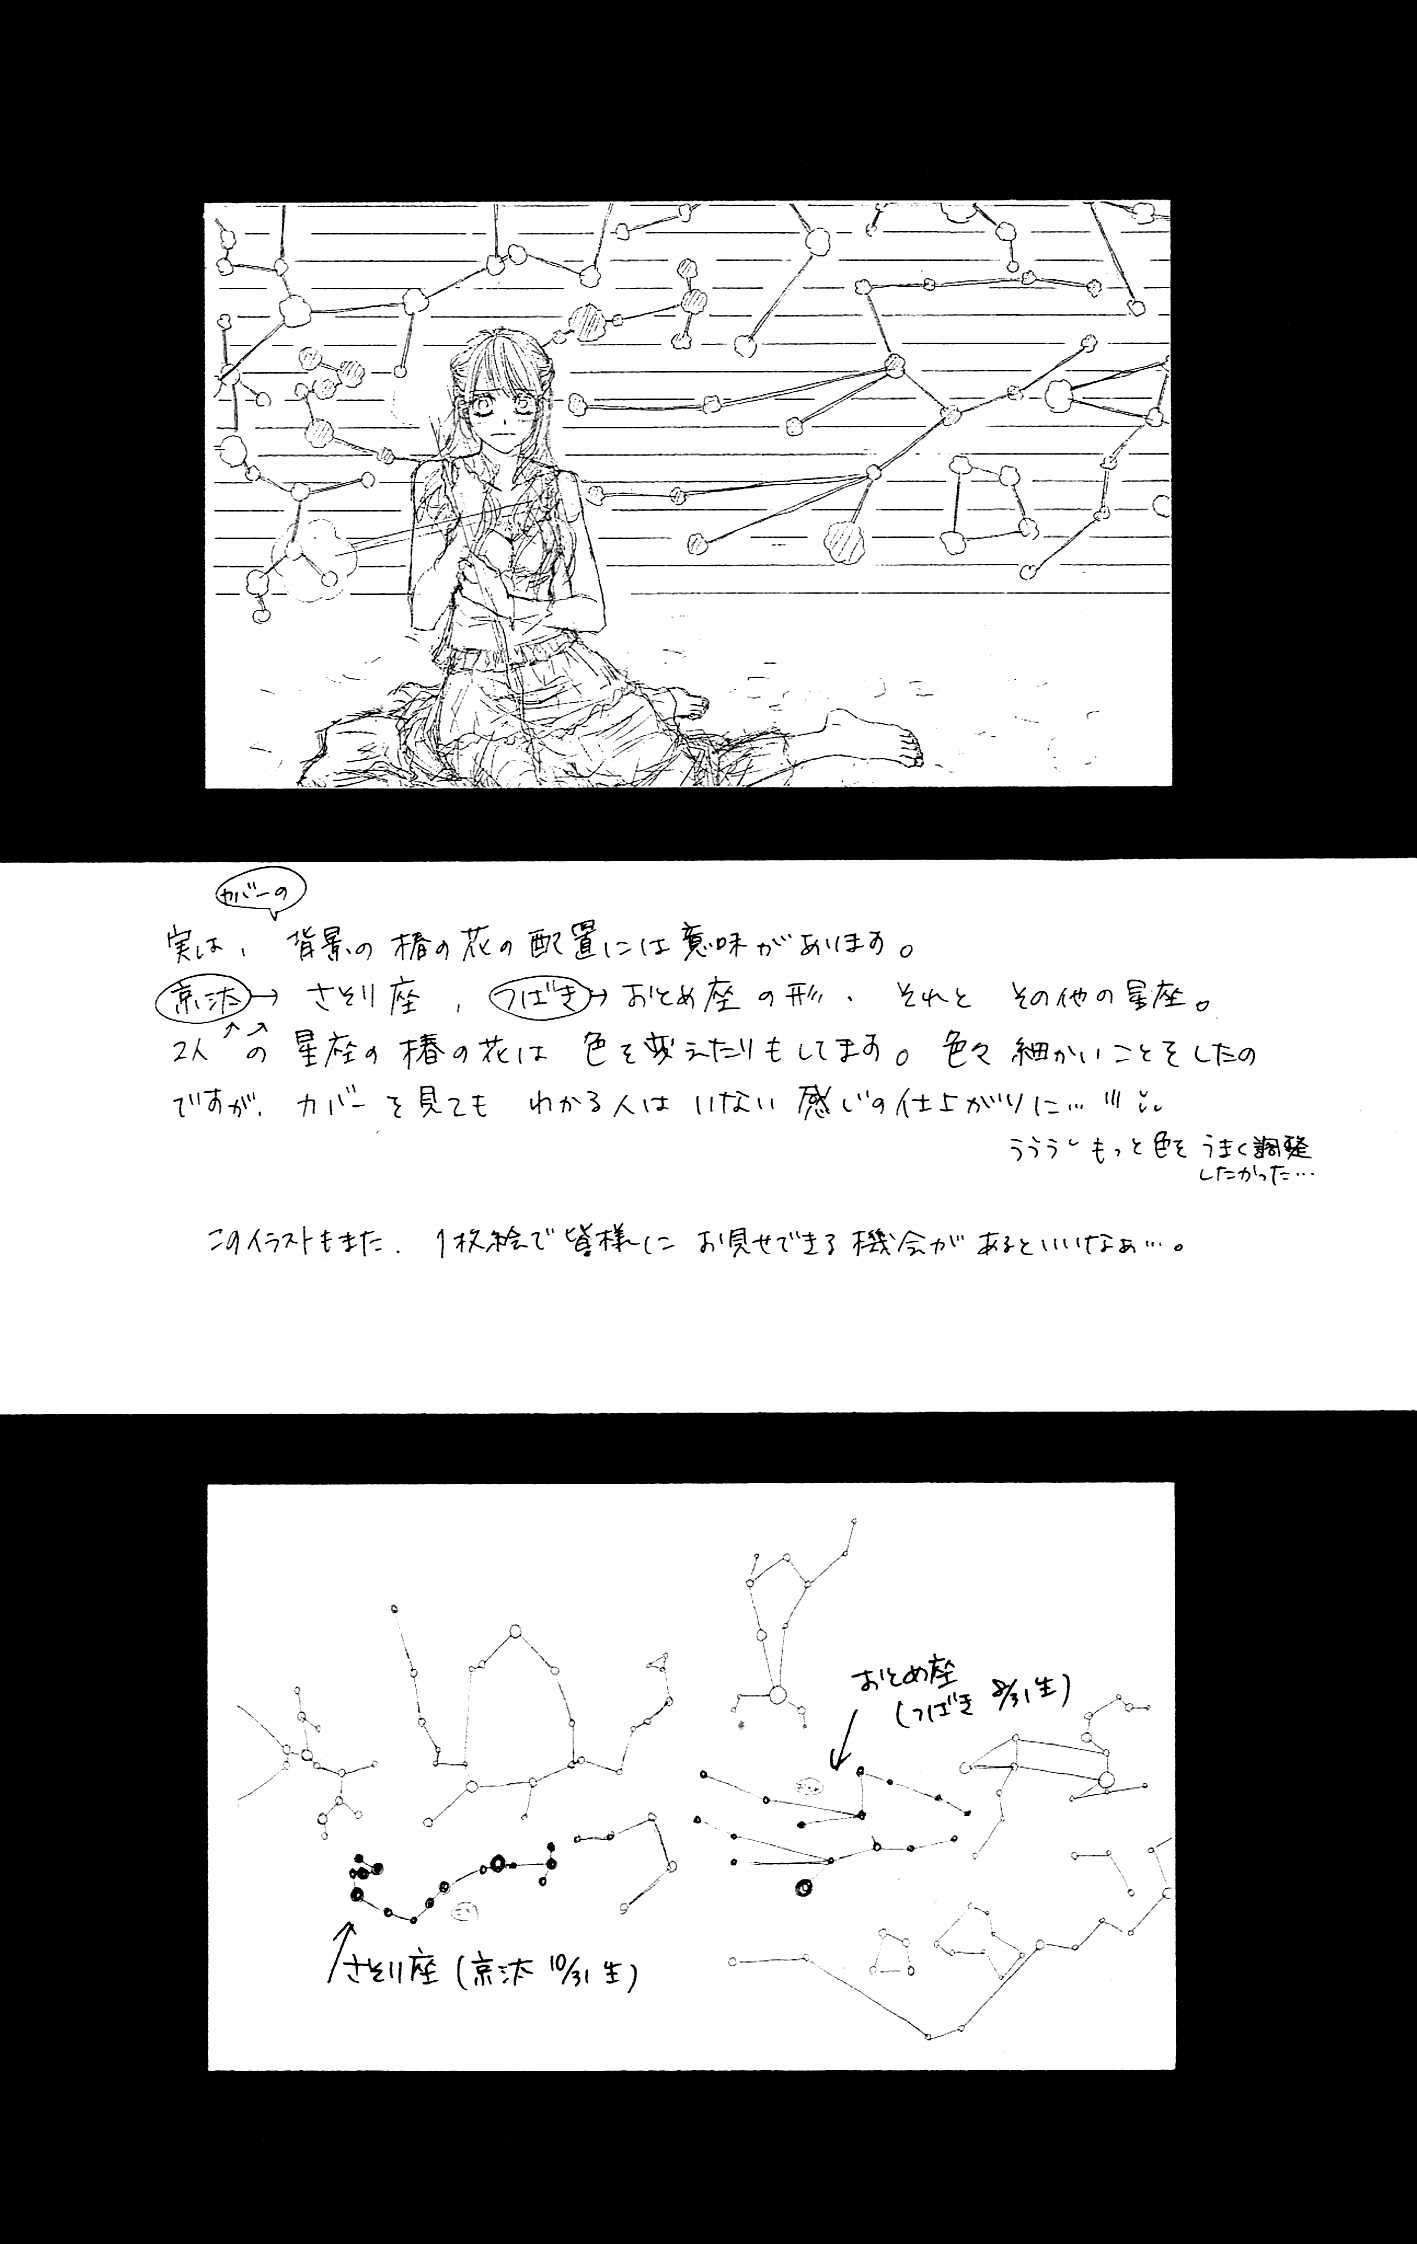 カバーの
実は、背景の椿の花の配置には意味があります。
京汰→さそり座、つばき→おとめ座の形、それとその他の星座。
2人の星座の椿の花は色を変えたりもしてます。色々細かいことをしたの
ですが、カバーを見てもわかる人はいない感じの仕上がりに…
ううう もっと色をうまく調整
したかった…
このイラストもまた、1枚絵で皆様にお見せできる機会があるといいなぁ…。
おとめ座
(つばき 8/31生)
さそり座(京汰 10/31生)